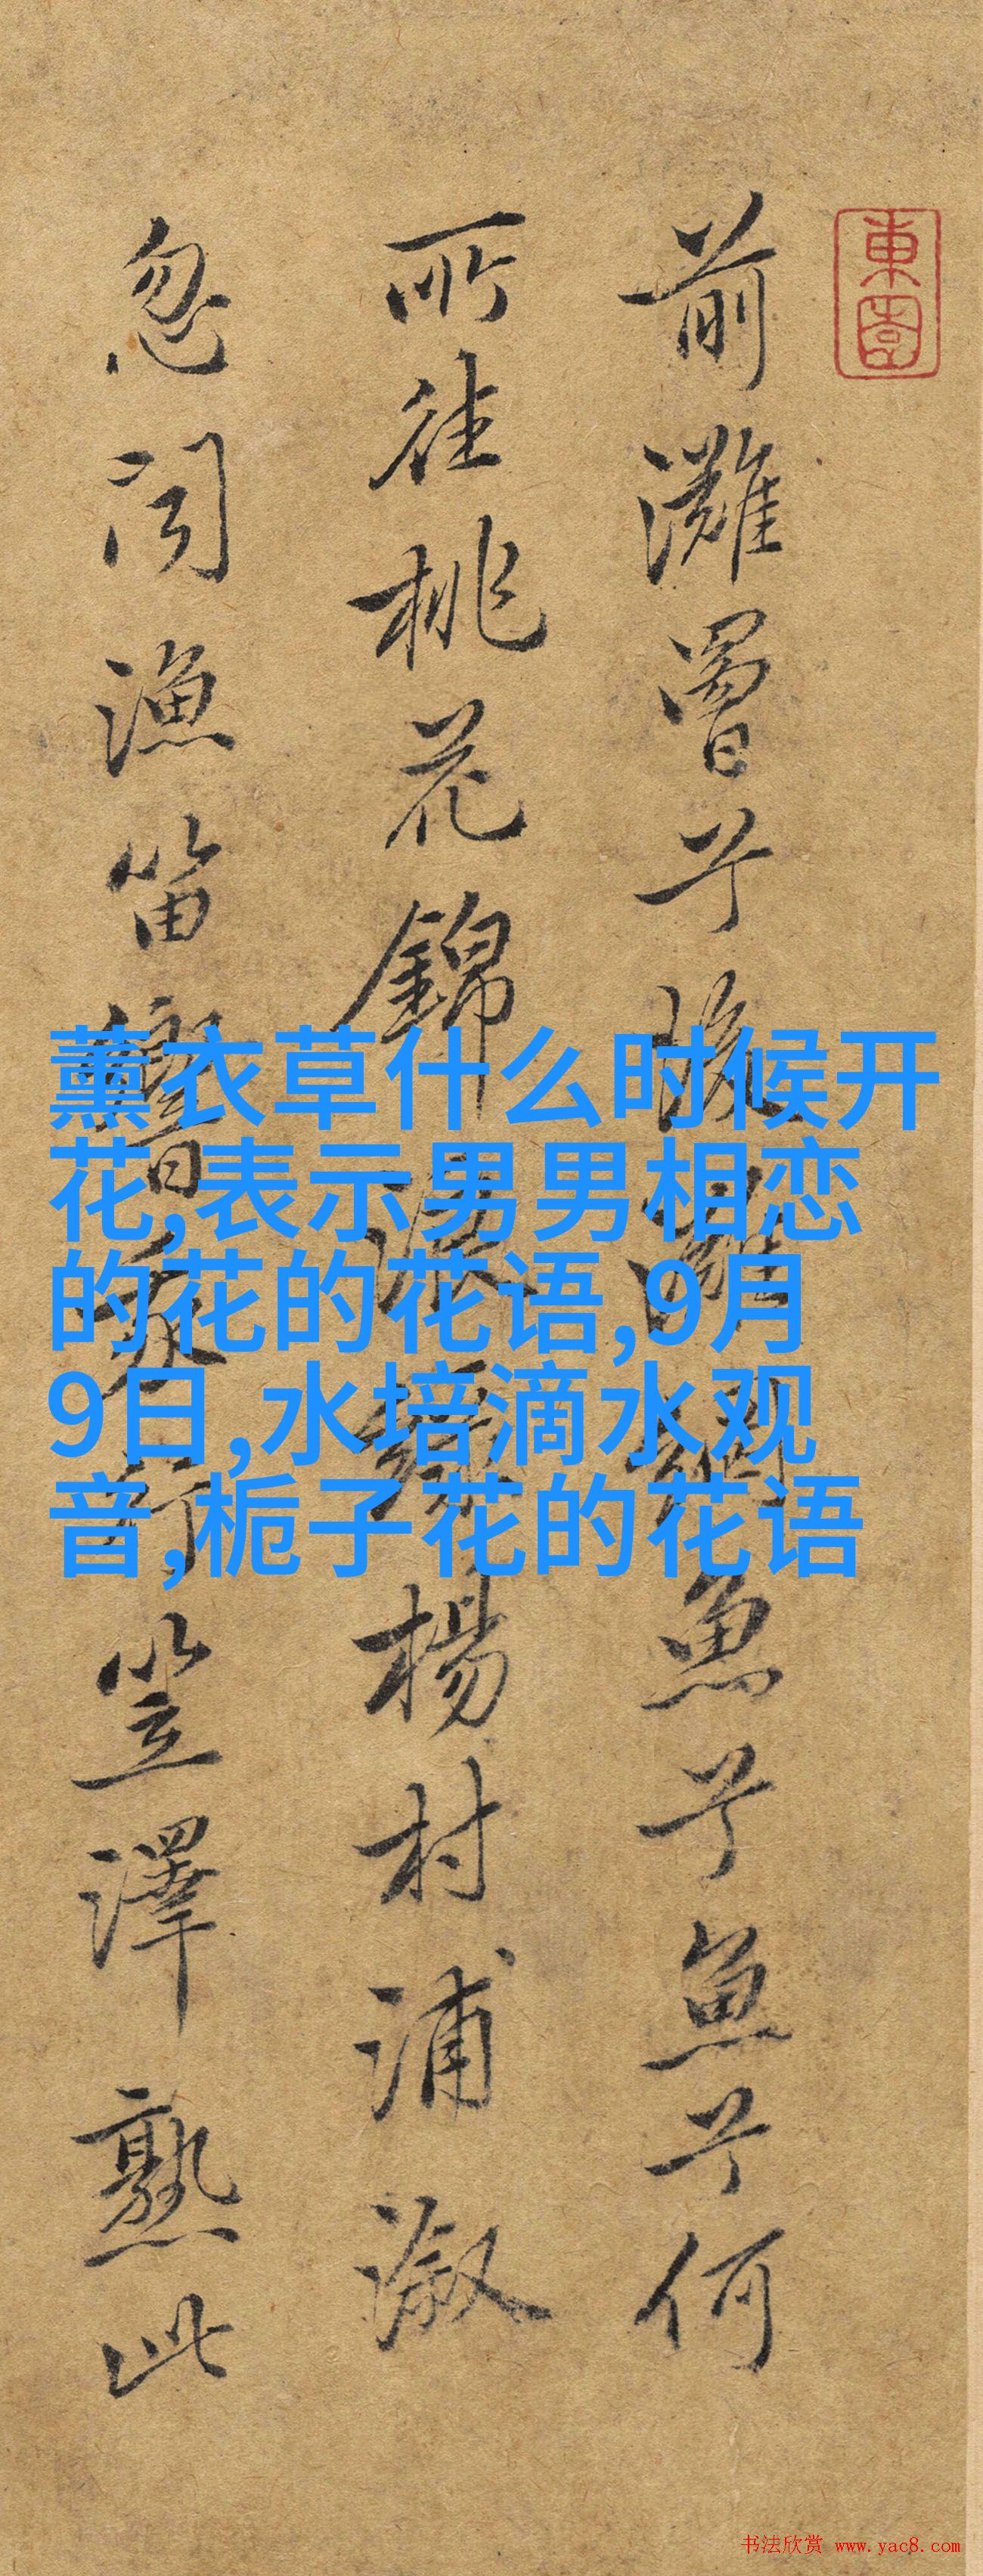 東園
前灘罾乍
魚乍魚乍何
所往桃花錦
楊村浦溆
忽闻漁笛響
笠澤熟此
薰衣草什么时候开
花,表示男男相恋
的花的花语,9月
9日,水培滴水观
音,栀子花的花语
书法欣赏 www.yac8.com